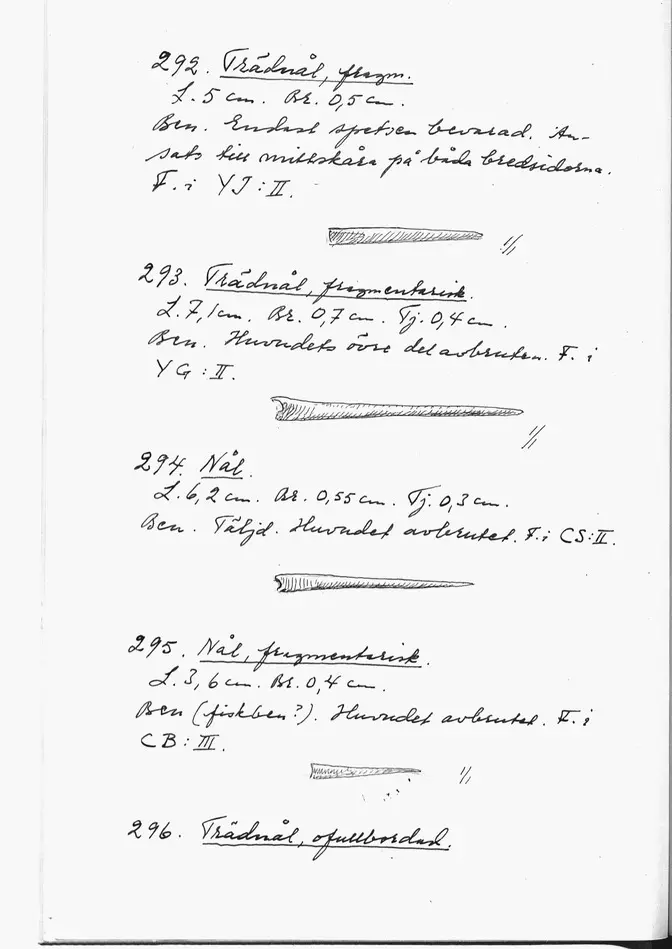 292. Trädnål, fragm.
L. 5 cm. Br. 0,5 cm.
Ben. Endast spetsen bevarad. An-
sats till mittskåra på båda bredsidorna.
F. i YJ:II.
1/1
293. Trädnål, fragmentarisk.
L. 7,1 cm. Br. 0,7 cm. Tj. 0,4 cm.
Ben. Huvudets övre del avbruten. F. i
YG:II.
1/1
294. Nål.
L. 6,2 cm. Br. 0,55 cm. Tj. 0,3 cm.
Ben. Täljd. Huvudet avbrutet. F. i CS:II.
295. Nål, fragmentarisk.
L. 3,6 cm. Br. 0,4 cm.
Ben (fiskben?). Huvudet avbrutet. F. i
CB:III.
1/1
296. Trädnål, ofullbordad.